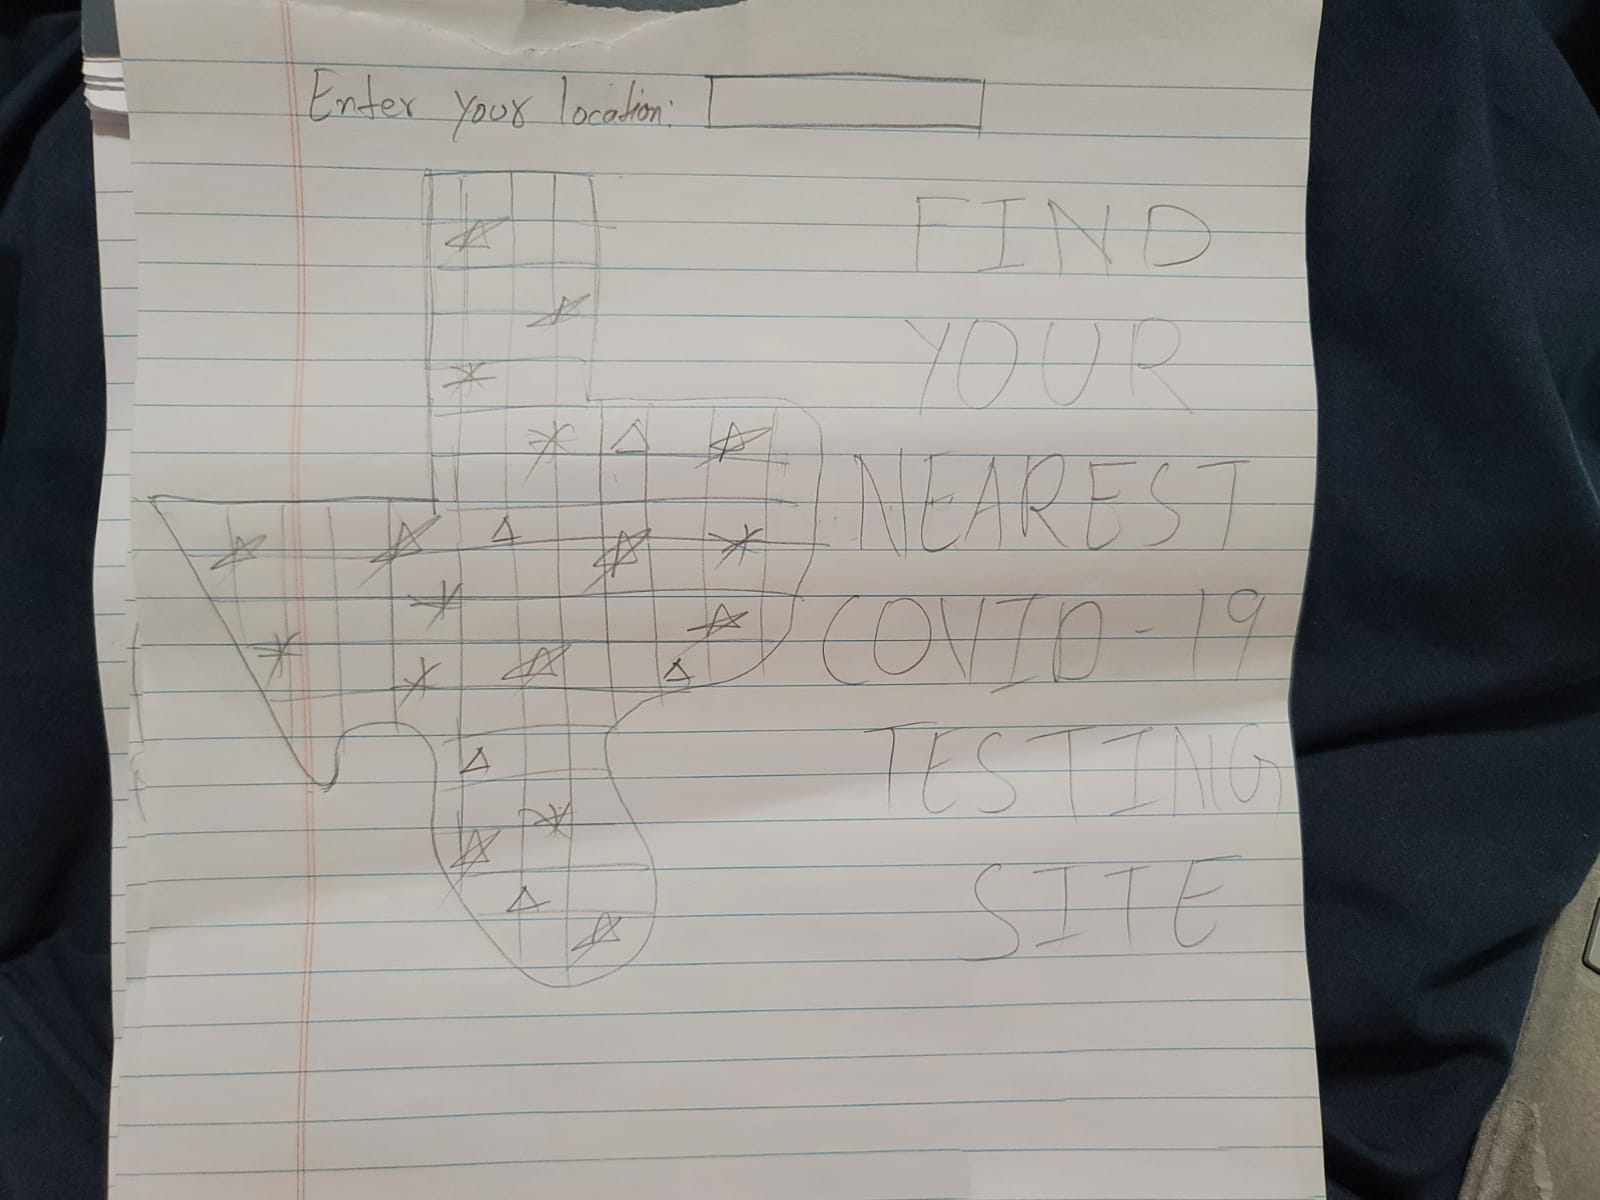 Enter your location:
FIND
YOUR
NEAREST
COVID-19
TESTING
SITE